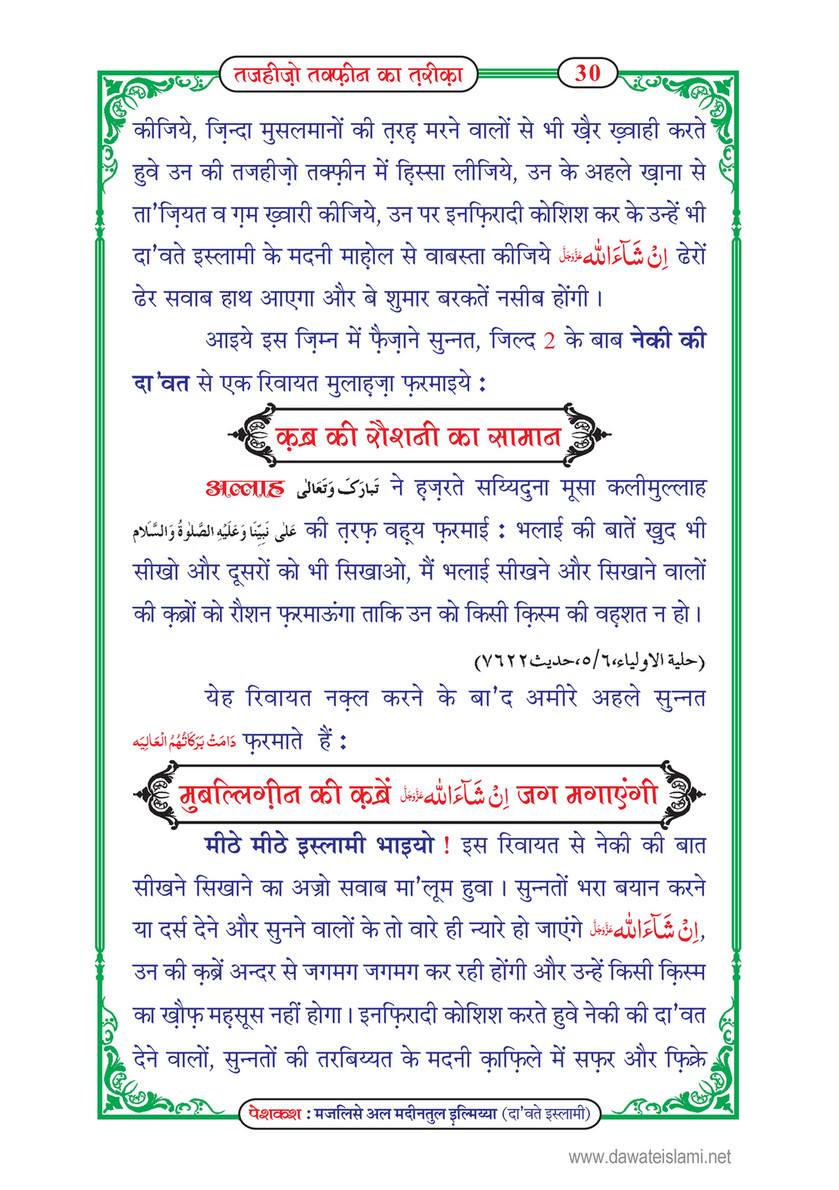 तजहीज़ो तक्फ़ीन का त़रीक़ा
30
कीजिये, ज़िन्दा मुसलमानों की त़रह़ मरने वालों से भी ख़ैर ख़्वाही करते
हुवे उन की तजहीज़ो तक्फ़ीन में ह़िस्सा लीजिये, उन के अहले ख़ाना से
ता'ज़ियत व ग़म ख़्वारी कीजिये, उन पर इनफ़िरादी कोशिश कर के उन्हें भी
दा'वते इस्लामी के मदनी माह़ोल से वाबस्ता कीजिये اِنْ شَآءَاللّٰه عَزَّوَجَلَّ ढेरों
ढेर सवाब हाथ आएगा और बे शुमार बरकतें नसीब होंगी ।
आइये इस ज़िम्न में फ़ैज़ाने सुन्नत, जिल्द 2 के बाब नेकी की
दा'वत से एक रिवायत मुलाह़ज़ा फ़रमाइये :
क़ब्र की रौशनी का सामान
अल्लाह تَبارَکَ وَتَعَالٰی ने ह़ज़रते सय्यिदुना मूसा कलीमुल्लाह
عَلٰی نَبِیِّنَا وَعَلَیْهِ الصَّلٰوةُ وَالسَّلَام की त़रफ़ वह़्य फ़रमाई : भलाई की बातें ख़ुद भी
सीखो और दूसरों को भी सिखाओ, मैं भलाई सीखने और सिखाने वालों
की क़ब्रों को रौशन फ़रमाऊंगा ताकि उन को किसी क़िस्म की वह़शत न हो ।
(حلية الاولياء،٥/٦،حديث٧٦٢٢)
येह रिवायत नक़्ल करने के बा'द अमीरे अहले सुन्नत
دَامَتْ بَرَكَاتُهُمُ الْعَالِيَه फ़रमाते हैं :
मुबल्लिग़ीन की क़ब्रें اِنْ شَآءَاللّٰه عَزَّوَجَلَّ जग मगाएंगी
मीठे मीठे इस्लामी भाइयो ! इस रिवायत से नेकी की बात
सीखने सिखाने का अज्रो सवाब मा'लूम हुवा । सुन्नतों भरा बयान करने
या दर्स देने और सुनने वालों के तो वारे ही न्यारे हो जाएंगे اِنْ شَآءَاللّٰه عَزَّوَجَلَّ,
उन की क़ब्रें अन्दर से जगमग जगमग कर रही होंगी और उन्हें किसी क़िस्म
का ख़ौफ़ मह़सूस नहीं होगा । इनफ़िरादी कोशिश करते हुवे नेकी की दा'वत
देने वालों, सुन्नतों की तरबिय्यत के मदनी क़ाफ़िले में सफ़र और फ़िक्रे
पेशकश : मजलिसे अल मदीनतुल इ़ल्मिय्या (दा'वते इस्लामी)
www.dawateislami.net